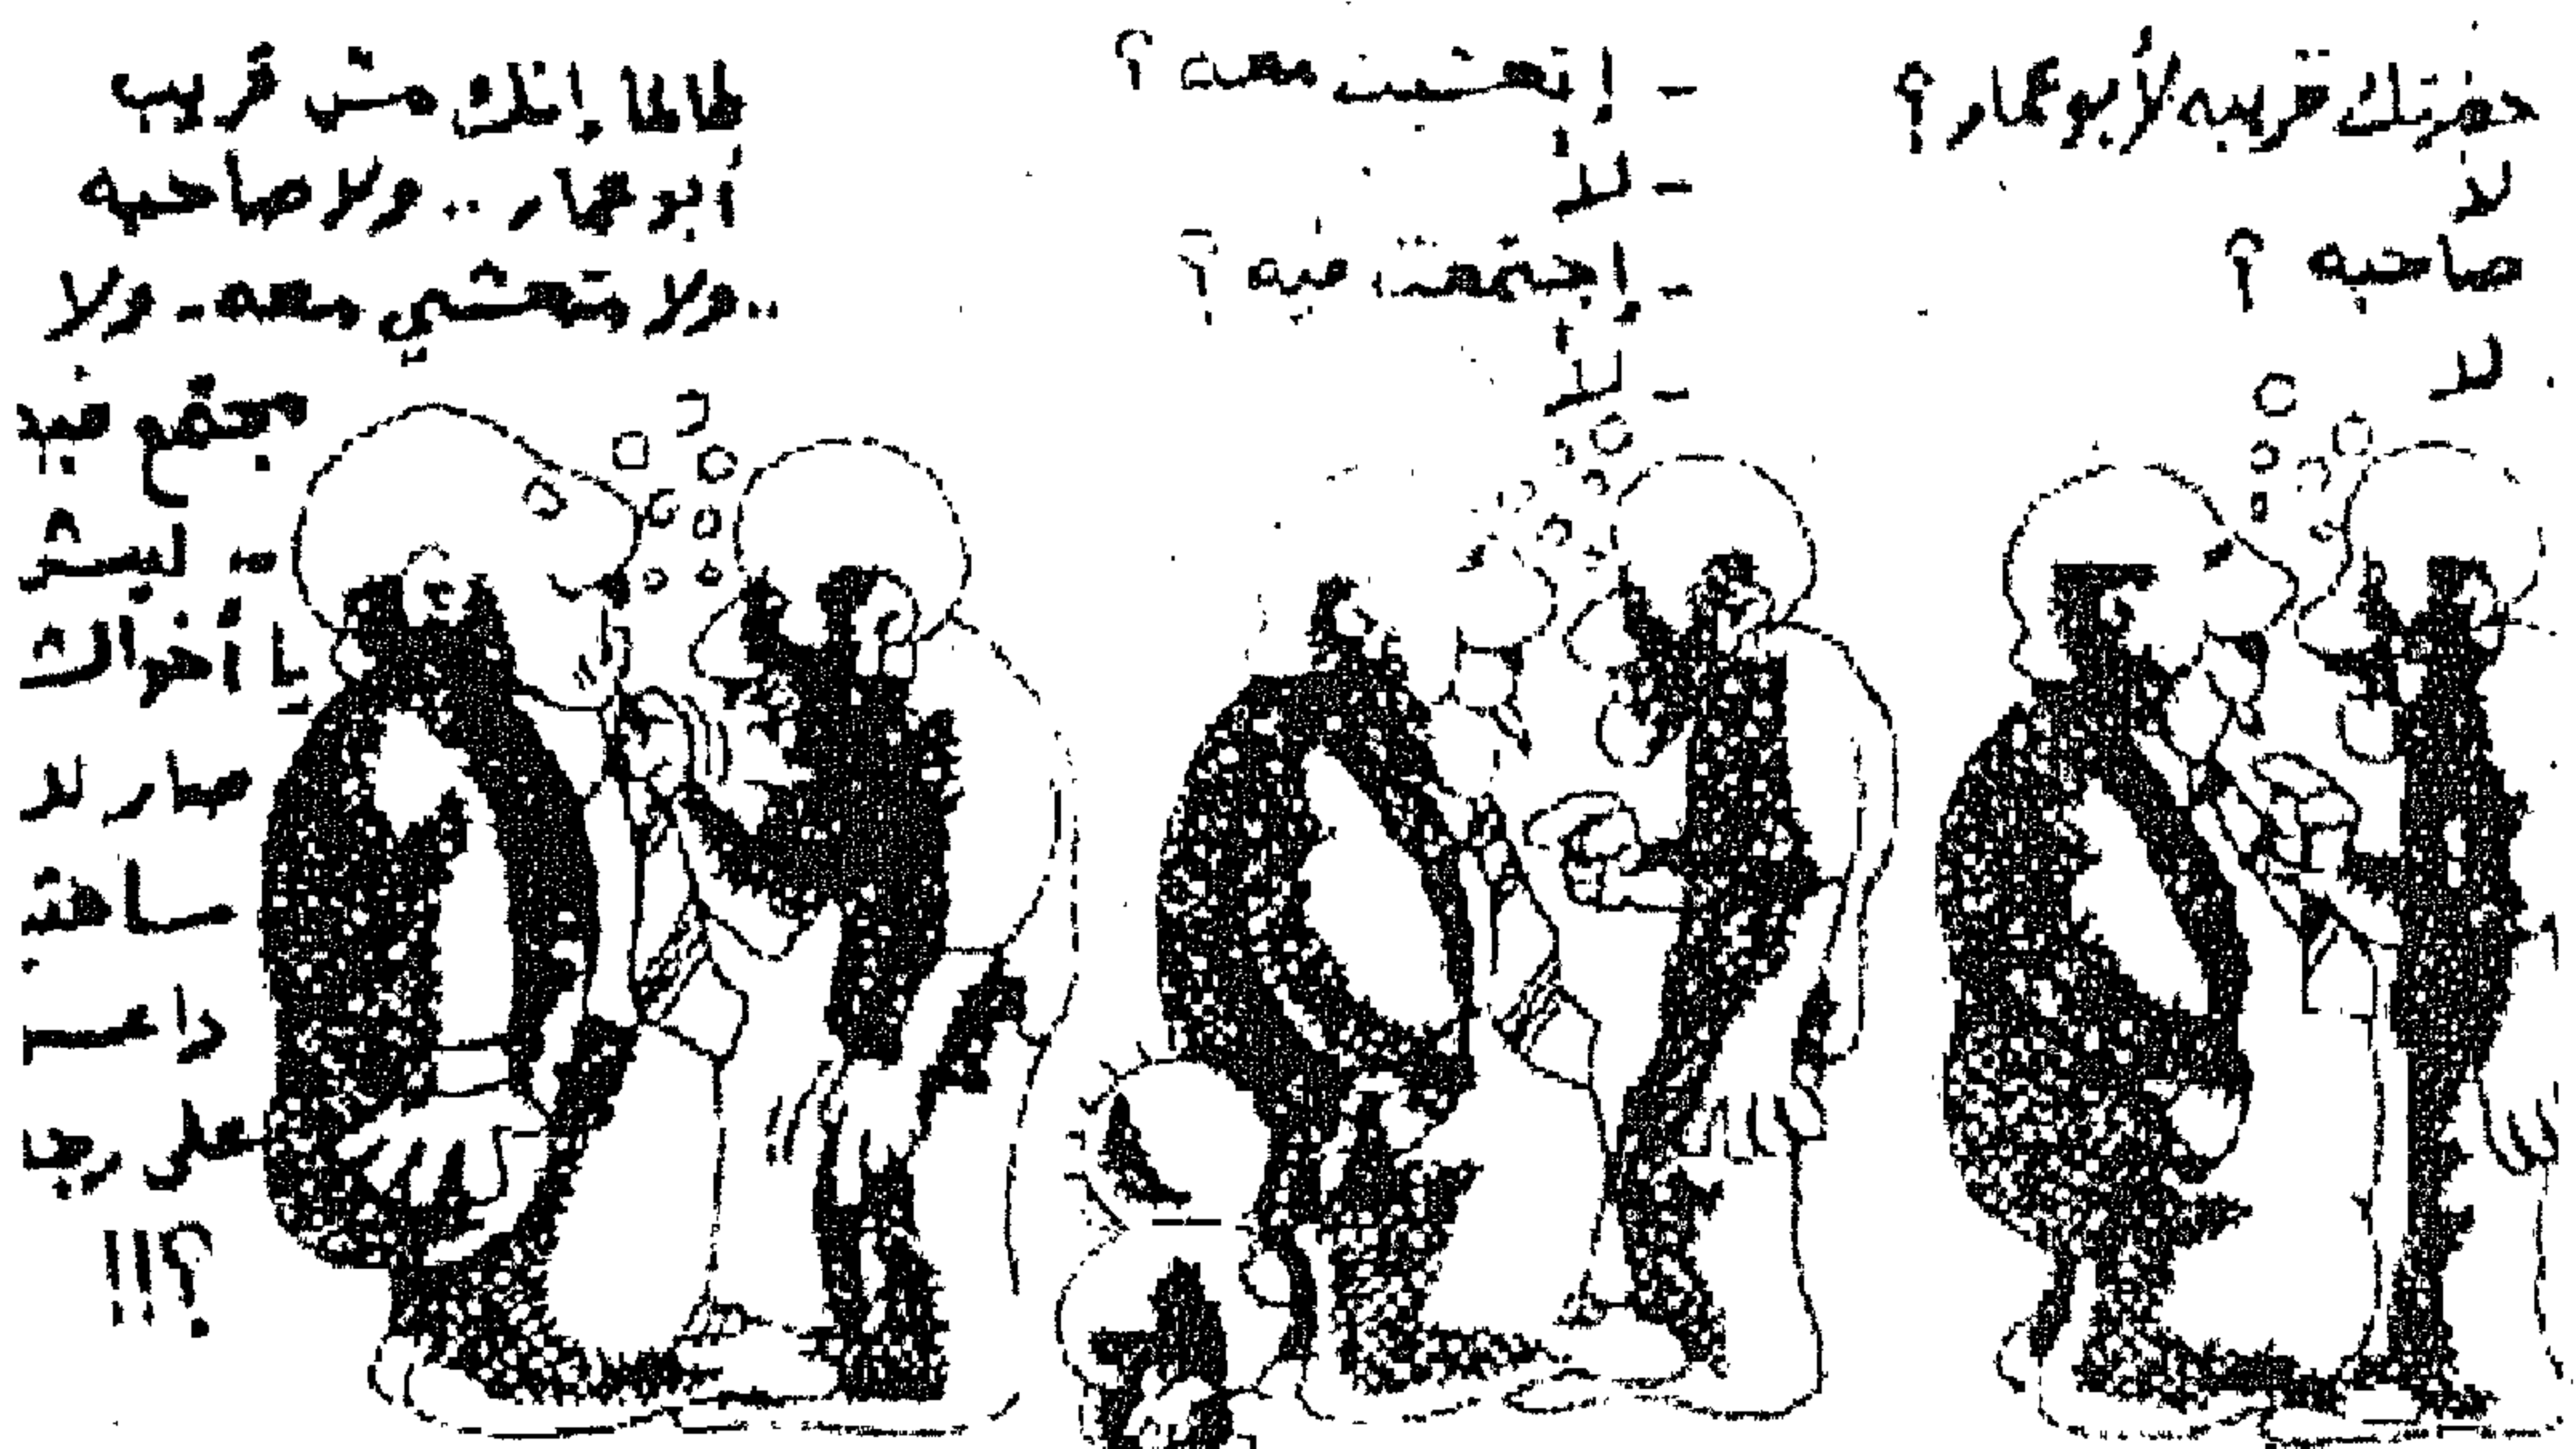 حضرتك قريبه لأبو عمار؟
لا
صاحبه؟
لا
- إتعشيت معه؟
- لأ
- إجتمعت فيه؟
- لأ
طالما إنك مش قريب
أبو عمار .. ولا صاحبه
.. ولا متعشي معه - ولا
مجتمع فيه
.. ليش
يا أخوات
صار لا
داعـ
على
؟!!